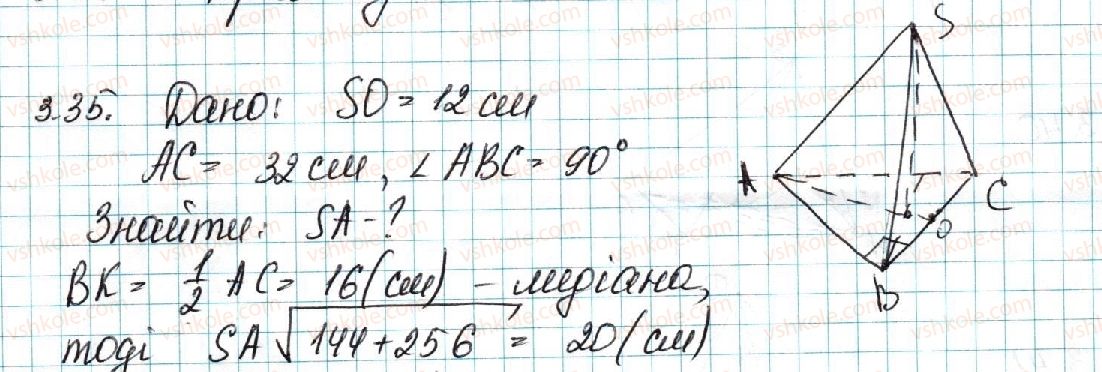 3.35. Дано: SO = 12 см
AC = 32 см, ∠ ABC = 90°
Знайти: SA - ?
BK = 1/2 AC = 16 (см) - медіана,
тоді SA √144 + 256 = 20 (см)
S
A
C
O
B